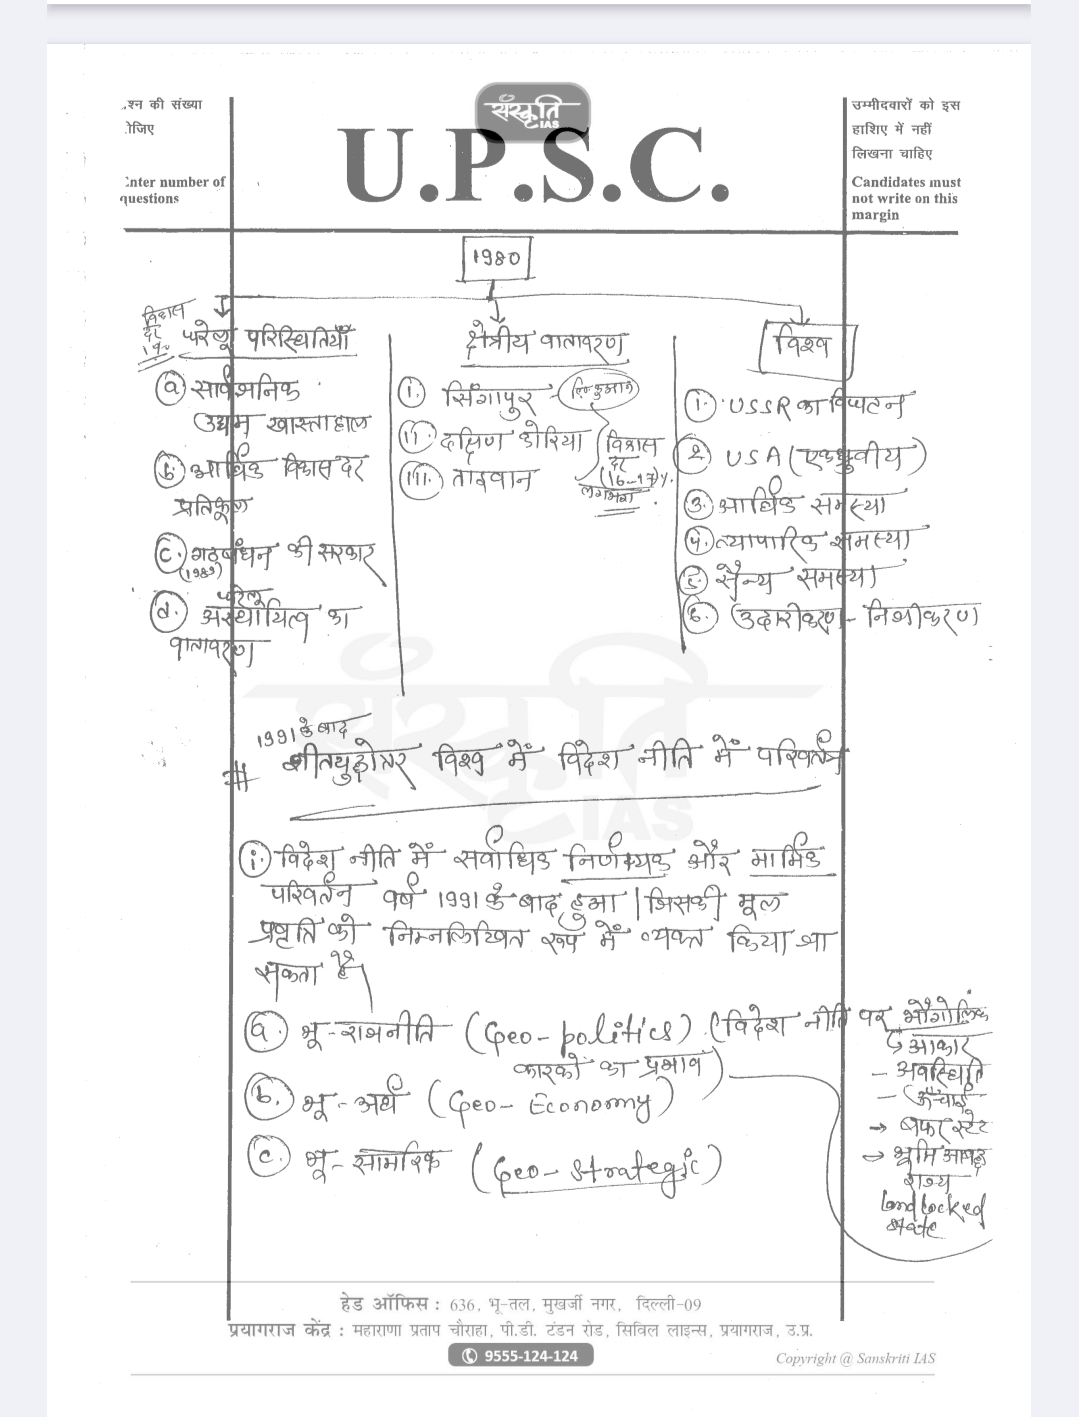 संस्कृति
IAS
U.P.S.C.
श्न की संख्या
ीजिए
Enter number of
questions
उम्मीदवारों को इस
हाशिए में नहीं
लिखना चाहिए
Candidates must
not write on this
margin
1980
विकास
दर
1%
घरेलू परिस्थितियाँ
a सार्वजनिक
उद्यम खास्ताहाल
b आर्थिक विकास दर
प्रतिकूल
c. गठबंधन की सरकार
(1989)
घरेलू
d. अस्थायित्व का
वातावरण
क्षेत्रीय वातावरण
i. सिंगापुर
ii. दक्षिण कोरिया
iii. ताइवान
विकास
दर
(16-17)%
लगभग
विश्व
1. USSR का विघटन
2. USA (एकध्रुवीय)
3. आर्थिक समस्या
4. व्यापारिक समस्या
5. सैन्य समस्या
6. उदारीकरण - निजीकरण
1991 के बाद
# शीतयुद्धोत्तर विश्व में विदेश नीति में परिवर्तन
संस्कृति
IAS
i. विदेश नीति में सर्वाधिक निर्णायक और मार्मिक
परिवर्तन वर्ष 1991 के बाद हुआ | जिसकी मूल
प्रवृति को निम्नलिखित रूप में व्यक्त किया जा
सकता है |
a. भू-राजनीति (Geo-politics) (विदेश नीति पर भौगोलिक
कारकों का प्रभाव)
b. भू-अर्थ (Geo-Economy)
c. भू-सामरिक (Geo-strategic)
आकार
- अवस्थिति
- ऊँचाई
→ बफर स्टेट
→ भूमि आबद्ध
राज्य
Landlocked
state
हेड ऑफिस : 636, भू-तल, मुखर्जी नगर, दिल्ली-09
प्रयागराज केंद्र : महाराणा प्रताप चौराहा, पी.डी. टंडन रोड, सिविल लाइन्स, प्रयागराज, उ.प्र.
9555-124-124
Copyright @ Sanskriti IAS